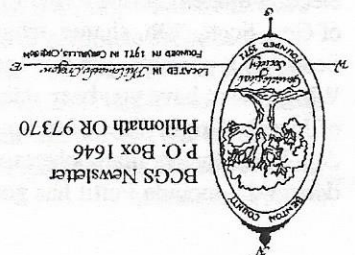 BCGS Newsletter
P.O. Box 1646
Philomath OR 97370
N
BENTON COUNTY
Genealogical
Society
FOUNDED 1971
W
E
S
LOCATED IN Philomath, Oregon
FOUNDED IN 1971 IN CORVALLIS, OREGON